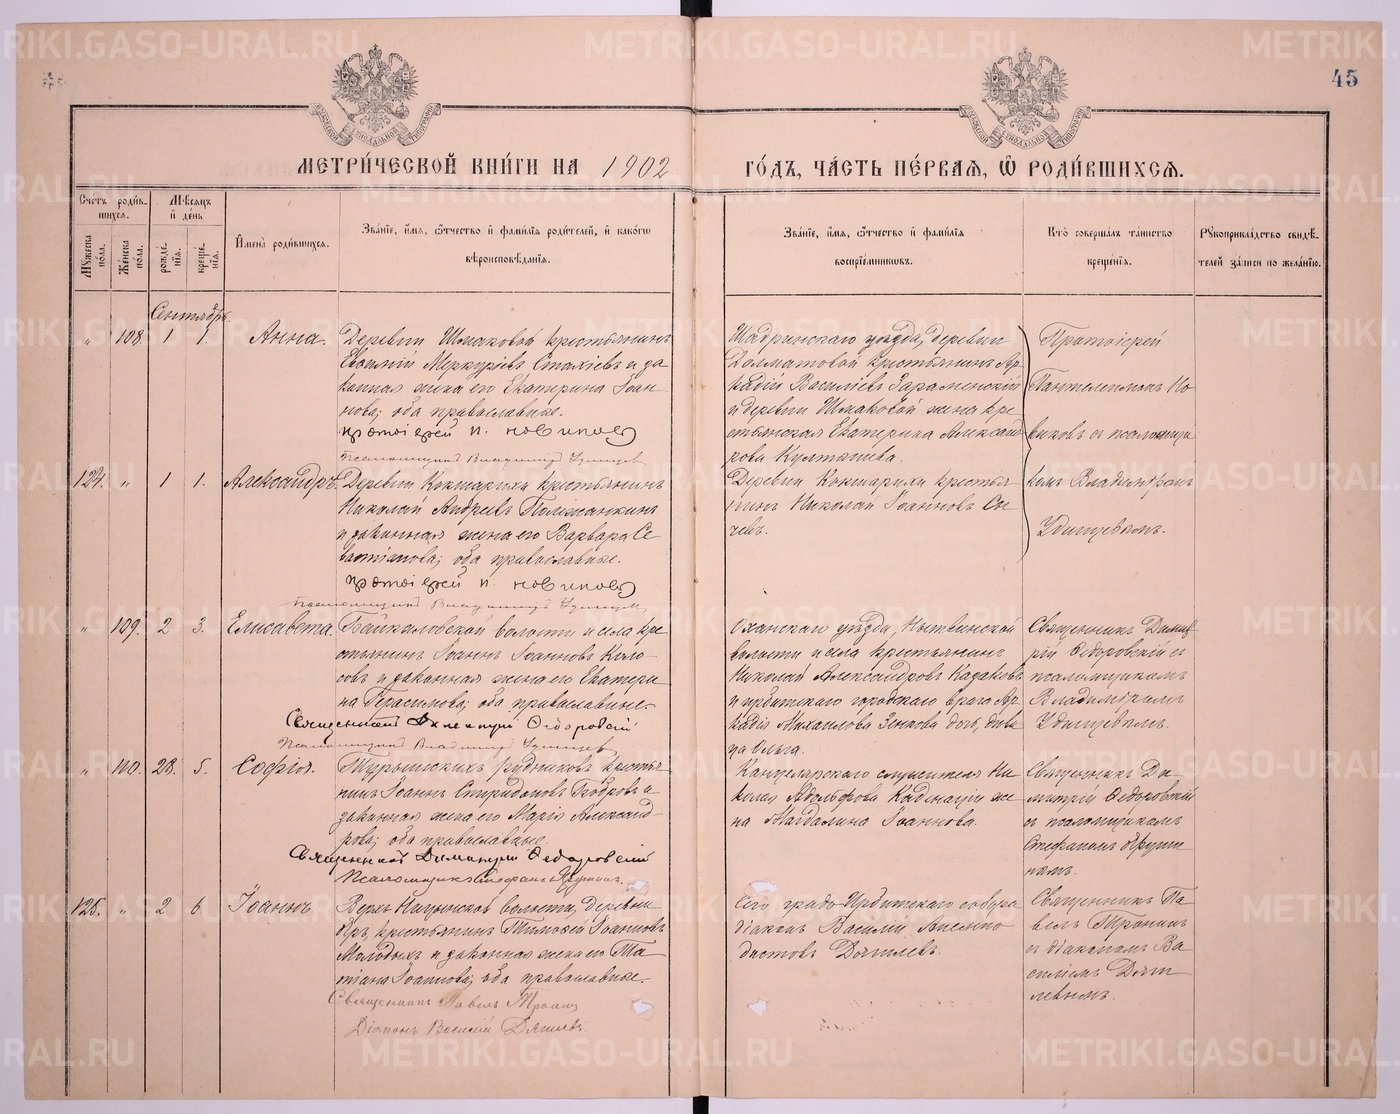 45
МЕТРИ́ЧЕСКОЙ КНИ́ГИ НА 1902 ГО́ДЪ, ЧА́СТЬ ПЕ́РВАЯ, Ѡ РОДИ́ВШИХСЯ.
Счетъ роди́вшихся.
Мꙋжеска по́ла.
Же́нска по́ла.
Мѣ́сяцъ и҆ де́нь
рожде́нїя.
креще́нїя.
И҆мена̀ роди́вшихся.
Зва́нїе, и҆́мя, ѻ҆́тчество и҆ фами́лїя роди́телей, и҆ како́гѡ
вѣроисповѣ́данїя.
Зва́нїе, и҆́мя, ѻ҆́тчество и҆ фами́лїя
воспрїе́мниковъ.
Кто̀ соверша́лъ та́инство
креще́нїя.
Рꙋкоприкла́дство свидѣ́телей за́писи по жела́нїю.
Сентябрь
„ 108. 1 1. Анна.
Деревни Шмаковой крестьянинъ
Евѳимій Меркуріевъ и за-
конная жена его Екатерина Іоан-
нова; оба православные.
протоіерей п. новиковъ
Псаломщикъ Владимиръ Удинцевъ
Шадринскаго уѣзда, деревни
Долматовой крестьянинъ Ар-
кадій Василіевъ
и деревни Шмаковой жена кре-
стьянская Екатерина Александ-
рова Култышева.
Протоіерей
Пантелеимонъ Но-
виковъ съ псаломщи-
комъ Владимiромъ
Удинцевымъ.
124. „ 1 1. Александръ.
Деревни Кокшарихи крестьянинъ
Николай Андреевъ
и законная жена его Варвара Се-
вастіанова; оба православные.
протоіерей п. новиковъ
Псаломщикъ Владимиръ Удинцевъ
Деревни Кокшарихи крестья-
нинъ Николай Іоанновъ Сы-
чевъ.
„ 109. 2 3. Елисавета.
Байкаловской волости и села кре-
стьянинъ Іоаннъ Іоанновъ Коло-
совъ и законная жена его Екатери-
на Герасимова; оба православные.
Священникъ Димитрій Ѳедоровскій
Псаломщикъ Владимиръ Удинцевъ
Оханскаго уѣзда, Нытвинской
волости и села крестьянинъ
Николай Александровъ Казаковъ
и ирбитскаго городскаго врача Ар-
кадія Михаилова Зенкова дочь, дѣви-
ца Ольга.
Священникъ Димит-
рій Ѳедоровскій съ
псаломщикомъ
Владимiромъ
Удинцевымъ.
„ 110. 28. 5. Софія.
Турьинскихъ рудниковъ крестья-
нинъ Іоаннъ Спиридоновъ Бобровъ и
законная жена его Марія Александ-
рова; оба православные.
Священникъ Димитрій Ѳедоровскій
Псаломщикъ Стефанъ
Канцелярскаго служителя Ни-
колая Адольфова же-
на Магдалина Іоаннова.
Священникъ Ди-
митрій Ѳедоровскій
съ псаломщикомъ
Стефаномъ
125. „ 2 6. Іоаннъ.
Верхъ Ницынской волости, деревни
крестьянинъ Тимоѳей Іоанновъ
Молодыхъ и законная жена его Та-
тіана Іоаннова; оба православные.
Священникъ Павелъ Тронинъ
Діаконъ Василій Дягилевъ.
Сего града Ирбитскаго собора
діаконъ Василій Анемпо-
дистовъ Дягилевъ.
Священникъ Па-
велъ Тронинъ
съ діакономъ Ва-
силіемъ Дяги-
левымъ.
METRIKI.GASO-URAL.RU